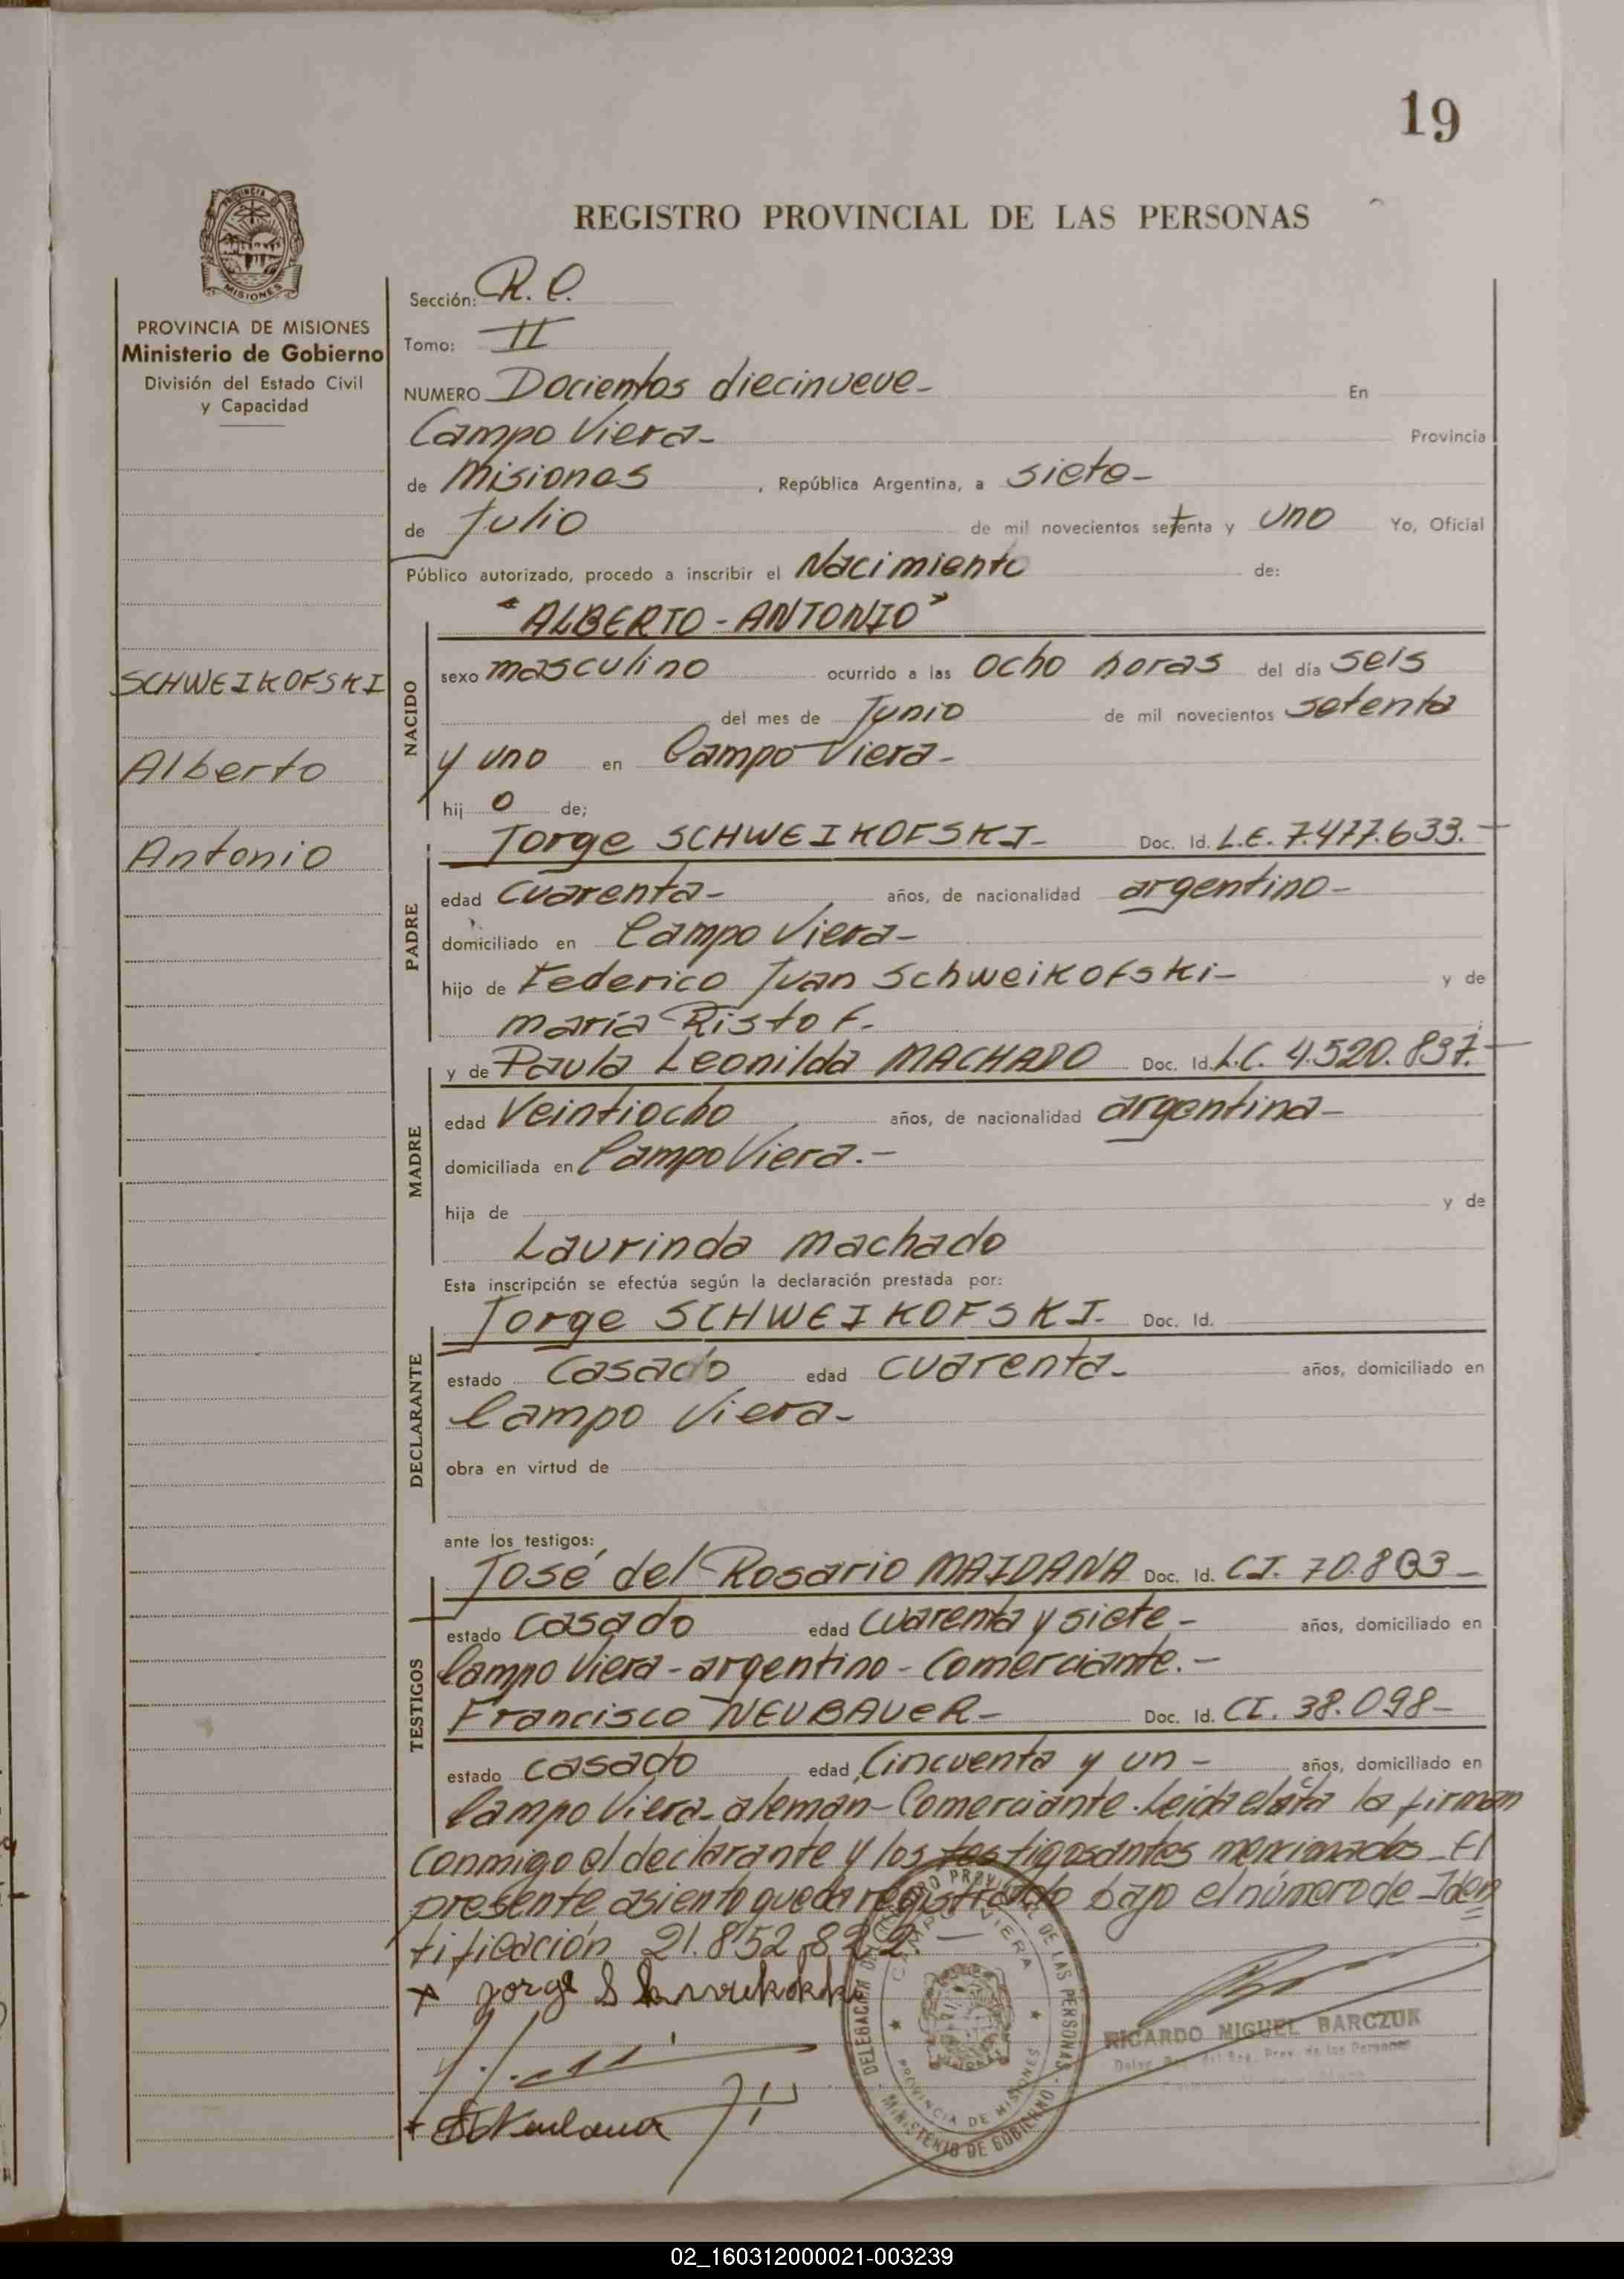 19
REGISTRO PROVINCIAL DE LAS PERSONAS
PROVINCIA
MISIONES
PROVINCIA DE MISIONES
Ministerio de Gobierno
División del Estado Civil
y Capacidad
SCHWEIKOFSKI
Alberto
Antonio
Sección: R. C.
Tomo: II
NUMERO Docientos diecinueve- En
Campo Viera- Provincia
de Misiones , República Argentina, a siete-
de Julio de mil novecientos setenta y uno Yo, Oficial
Público autorizado, procedo a inscribir el Nacimiento de:
NACIDO
"ALBERTO - ANTONIO"
sexo masculino ocurrido a las ocho horas del día seis
del mes de Junio de mil novecientos setenta
y uno en Campo Viera-
hij o de;
PADRE
Jorge SCHWEIKOFSKI- Doc. Id. L.E. 7.477.633.-
edad cuarenta- años, de nacionalidad argentino-
domiciliado en Campo Viera-
hijo de Federico Juan Schweikofski- y de
maría Ristof.
MADRE
y de Paula Leonilda MACHADO Doc. Id. L.C. 4.520.837.-
edad Veintiocho años, de nacionalidad argentina-
domiciliada en Campo Viera.-
hija de y de
Laurinda machado
Esta inscripción se efectúa según la declaración prestada por:
DECLARANTE
Jorge SCHWEIKOFSKI- Doc. Id.
estado casado edad cuarenta- años, domiciliado en
Campo Viera-
obra en virtud de
ante los testigos:
TESTIGOS
José del Rosario MAIDANA Doc. Id. C.I. 70.803-
estado casado edad cuarenta y siete- años, domiciliado en
Campo Viera-argentino-Comerciante.-
Francisco NEUBAUER- Doc. Id. CI. 38.098-
estado casado edad Cincuenta y un- años, domiciliado en
Campo Viera-aleman-Comerciante. Leida el acta la firman
conmigo el declarante y los testigos antes mencionados- El
presente asiento queda registrado bajo el número de Iden
tificación 21.852.822.-
x Jorge
DELEGACION DEL REGISTRO PROVINCIAL DE LAS PERSONAS
CAMPO VIERA
PROVINCIA DE MISIONES
MINISTERIO DE GOBIERNO
RICARDO MIGUEL BARCZUK
02_160312000021-003239